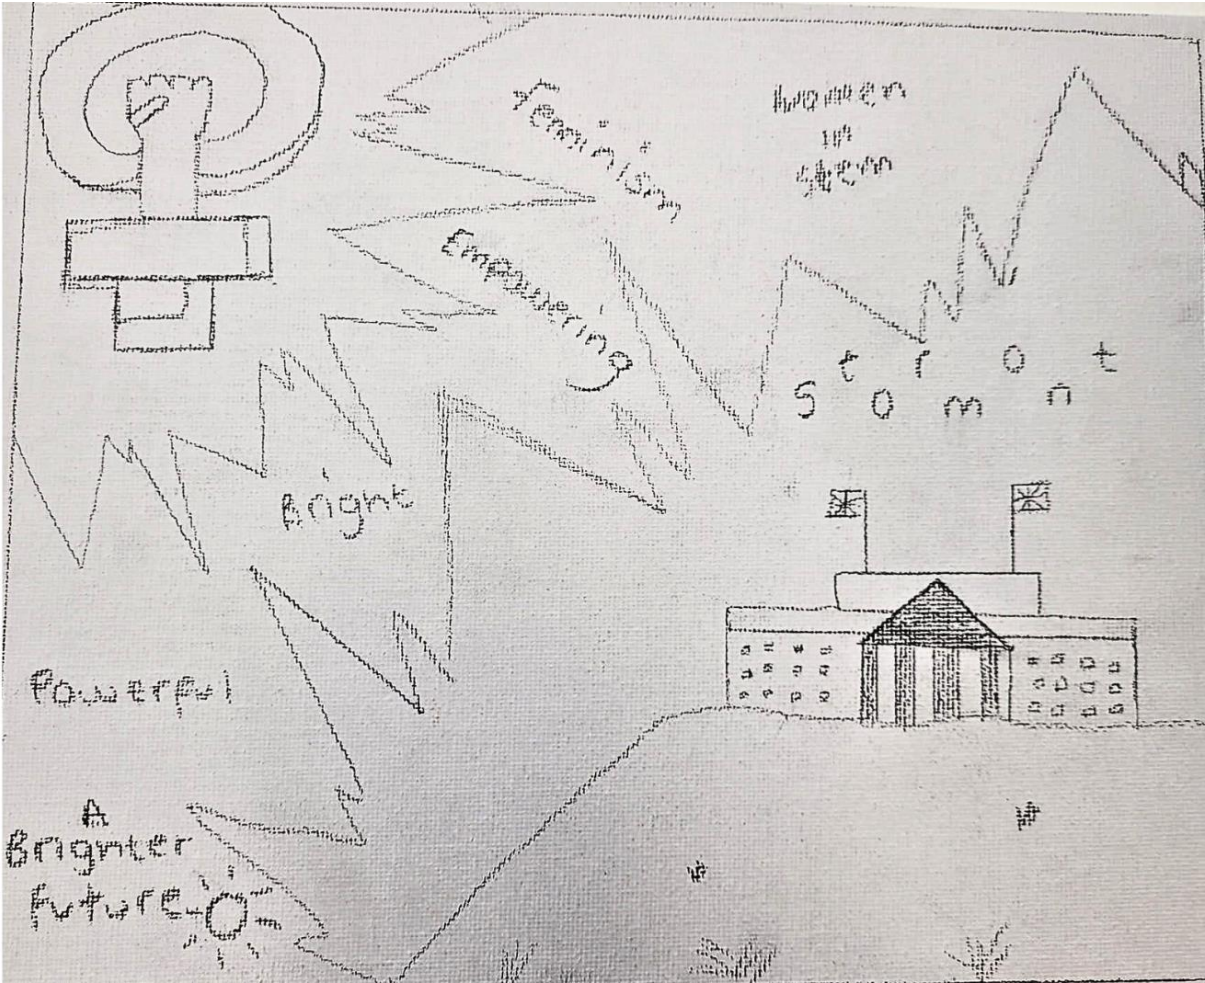 Feminism
Women
in
stem
Empowering
Stormont
Bright
Powerful
A
Brighter
Future